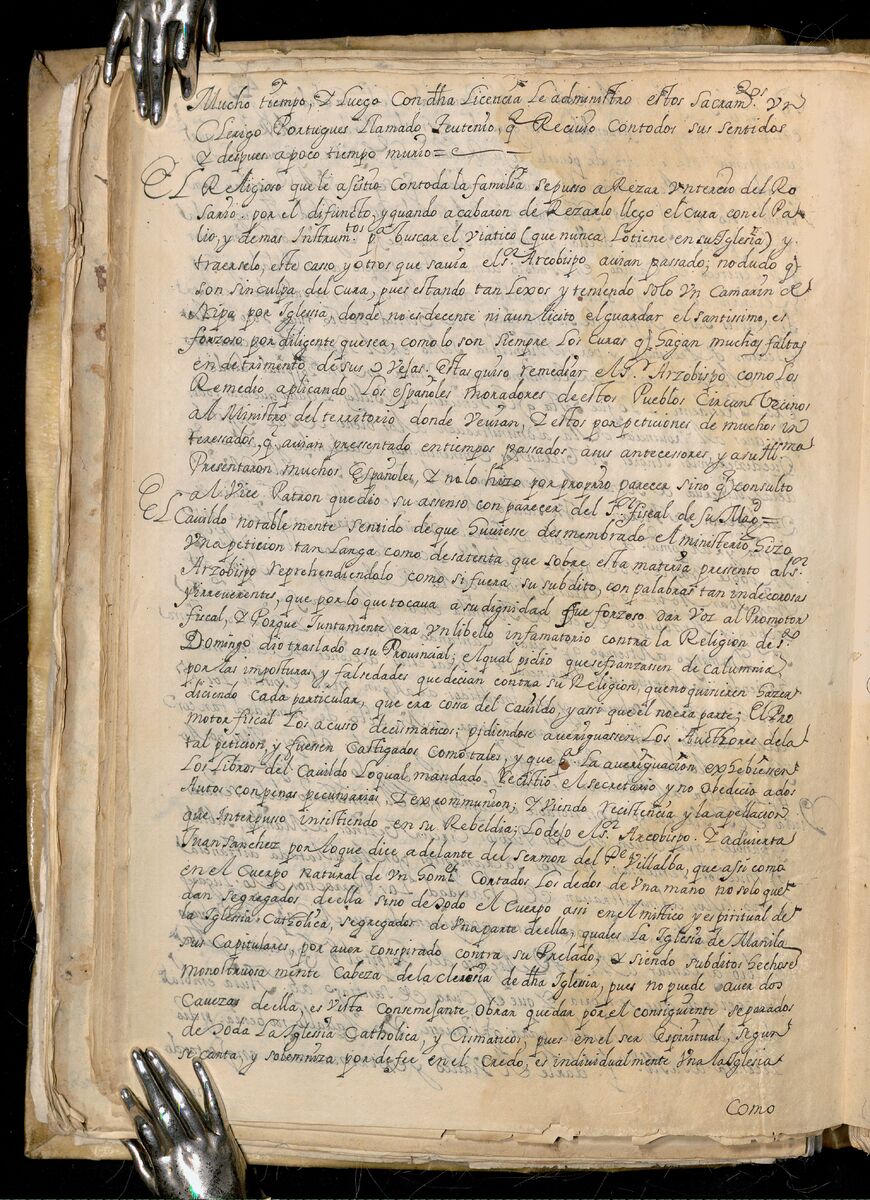 Mucho tiempo, Y Luego Con dha Licencia Le administro estos Sacram.tos Vn
Clerigo Portugues Llamado Feutenio, q Recivio Contodos sus sentidos
Y despues apoco tiempo murio=
EL Religioso que le assistio Contoda la familia sepusso a Rezar Vntercio del Ro
sario. por el difuncto, y quando acabaron de Rezarlo llego el Cura con el Pa
lio, y demas Instrum.tos pa buscar el Viatico (que nunca Lo tiene en su Iglesia) y
traerselo, este casso y otros que savia el S.r Arcobispo avian passado; no dudo q
son sin culpa del Cura, pues estando tan Lexos y teniendo solo Vn Camarin de
Nipa por Iglesia, donde no es decente ni aun licito el guardar el santissimo, es
forzoso por diligente que sea, como lo son siempre Los Curas q hagan muchas faltas
en detrimento de sus Ovejas. Estas quiso remediar el S.r Arzobispo como Los
Remedio aplicando Los españoles moradores de estos Pueblos Circunvezinos
al Ministro del territorio donde Vivian, Y estos por peticiones de muchos in
teressados, q avian pressentado en tiempos passados asus antecessores, y a su Ill.ma
Presentaron muchos Españoles, Y no lo hizo por proprio parecer sino q consulto
al Vice Patron que dio su assenso con parecer del S.r fiscal de su Mag.d=
EL Cavildo notablemente sentido de que huviesse desmembrado el ministerio, hizo
Vna peticion tan Larga como desatenta que sobre esta materia presento al S.r
Arzobispo reprehendiendolo como si fuera su subdito, con palabras tan indecorosas
y irreverentes, que por lo que tocava a su dignidad fue forzoso dar Voz al Promotor
fiscal, Y Porque Juntamente era Vn libello infamatorio contra la Religion de S.to
Domingo dio traslado a su Provincial; el qual pidio que se afianzassen de calumnia
por las imposturas, y falsedades que decian contra su Religion, que no quisieren hazer
diciendo cada particular, que era cosa del cavildo, y assi que el no era parte; El Pro
motor fiscal Los acusso de cismaticos; pidiendo se averiguassen Los Authores de la
tal peticion, y fuessen Castigados Como tales, y que pa La averiguacion exhebiessen
Los Libros del Cavildo Loqual mandado Recistio el secretario y no obedecio a dos
Autos con penas pecuniarias, Y excommunion; Y viendo recistencia y la apellacion
que Interpuso insistiendo en su Rebeldia; Lo dejo el S.r Arcobispo. Y advierta
Juan Sanchez por lo que dice adelante del sermon del P.e Villalba, que assi como
en el Cuerpo natural de Vn homb.e Cortados Los dedos de Vna mano no solo que
dan segregados de ella sino de todo el Cuerpo assi en el mistico y espiritual de
la Iglesia Catholica, segregados de Vna parte de ella; quales La Iglesia de Manila
sus Capitulares, por aver conspirado contra su Prelado, Y siendo subditos hechose
monstruosamente Cabeza de la cleresia de dha Iglesia, pues no puede aver dos
Cavezas de ella, es Visto Con semejante obrar quedar por el consiguiente separados
de toda La Iglesia Catholica, y Cismaticos; pues en el ser Espiritual, segun
se canta y solemniza por de fee en el Credo, es individualmente Vna la Iglesia
Como